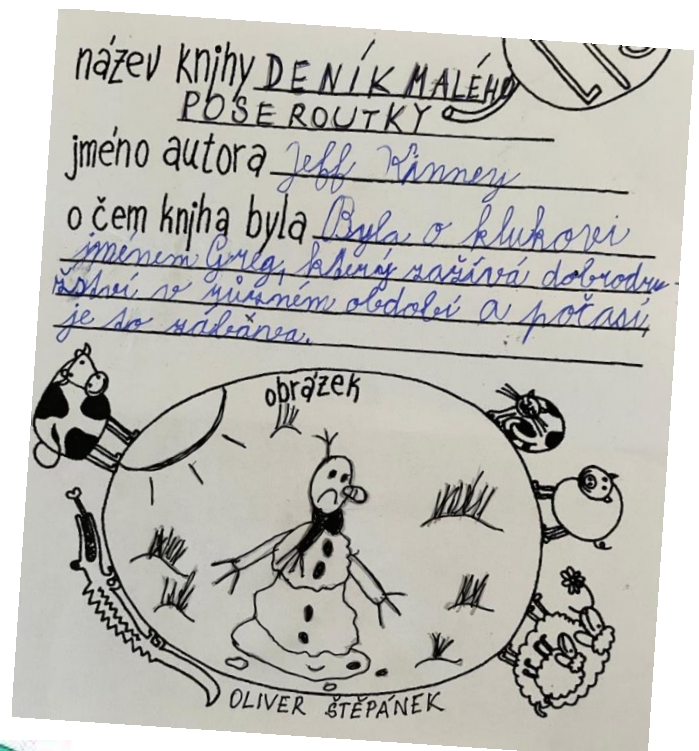 název knihy DENÍK MALÉHO
POSEROUTKY
jméno autora Jeff Kinney
o čem kniha byla Byla o klukovi
jménem Greg, který zažívá dobrodru-
žství v různém období a počasí,
je to zábavna.
obrázek
OLIVER ŠTĚPÁNEK